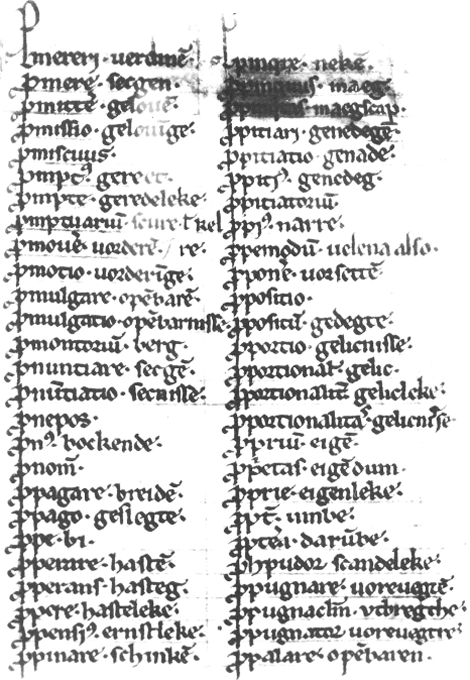 ꝓmereri · uerdinē·
ꝓmere· secgen·
ꝓmitte· geloue·
ꝓmissio· gelouige·
ꝓmiscuus·
ꝓmptꝰ· gereet·
ꝓmpte· geredeleke·
ꝓmptuariū sciure· ł kel
ꝓmouē· vorderē· / re·
ꝓmotio· uorderīge·
ꝓmulgare· opēbarē·
ꝓmulgatio· opēbarnisse·
ꝓmontoriū· berg·
ꝓnunciare· secgē·
ꝓnūtiatio· secnisse·
ꝓnepos·
ꝓnꝰ· bockende·
ꝓnom̄·
ꝓpagare· breidē·
ꝓpago· geslegte·
ꝓpe· bi·
ꝓperare· hastē·
ꝓperans· hasteg·
ꝓpere· hasteleke·
ꝓpensiꝰ· ernstleke·
ꝓpinare· schinkē·
ꝓpinq̄re· nekē·
ꝓpinquus· maeg·
ꝓpinq̄tas· maegscap·
ꝓpitiari· genedegē·
ꝓpitiatio· genade·
ꝓpitiꝰ· genedeg·
ꝓpitiatoriū·
ꝓpiꝰ· narre·
ꝓpemodū· uelena also·
ꝓponē· uorsettē·
ꝓpositio·
ꝓpositū· gedegte·
ꝓportio· gelicnisse·
ꝓportional̄· gelic·
ꝓportionalit̄· geliclcke·
ꝓportionalitas· gelicnisse·
ꝓpriū· eigē·
ꝓpietas· eigēdum·
ꝓprie· eigenleke·
ꝓpt̄· umbe·
ꝓptea· darūbe·
ꝓhpudor· scandeleke·
ꝓpugnare· uoreuegtē·
ꝓpugnaclm̄· vtbregthe·
ꝓpugnator· uoreuegtre·
ꝓpalare· opēbaren·